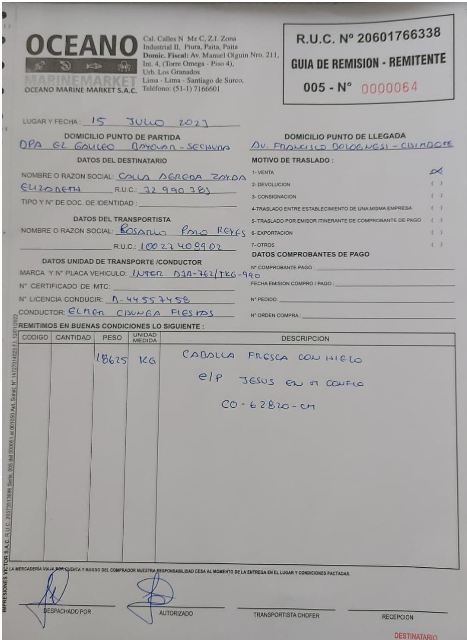 OCEANO
MARINEMARKET
OCEANO MARINE MARKET S.A.C.
Cal. Calles N Mz C, Z.I. Zona
Industrial II, Piura, Paita, Paita
Domic. Fiscal: Av. Manuel Olguin Nro. 211,
Int. 4, (Torre Omega - Piso 4),
Urb. Los Granados
Lima - Lima - Santiago de Surco,
Teléfono: (51-1) 7166601
R.U.C. Nº 20601766338
GUIA DE REMISION - REMITENTE
005 - Nº 0000064
LUGAR Y FECHA: 15 JULIO 2023
DOMICILIO PUNTO DE PARTIDA
DPA EL GALILEO BAYOVAR - SECHURA
DOMICILIO PUNTO DE LLEGADA
AV. FRANCISCO BOLOGNESI - CHIMBOTE
DATOS DEL DESTINATARIO
NOMBRE O RAZON SOCIAL: CALLA
ELIZABETH R.U.C.: 32990383
TIPO Y N° DE DOC. DE IDENTIDAD:
MOTIVO DE TRASLADO:
1- VENTA (X)
2- DEVOLUCION ( )
3- CONSIGNACION ( )
4-TRASLADO ENTRE ESTABLECIMIENTO DE UNA MISMA EMPRESA ( )
5-TRASLADO POR EMISOR ITINERANTE DE COMPROBANTE DE PAGO ( )
6- EXPORTACION ( )
7-OTROS ( )
DATOS DEL TRANSPORTISTA
NOMBRE O RAZON SOCIAL: ROSARIO REYES
R.U.C.: 10027408902
DATOS COMPROBANTES DE PAGO
N° COMPROBANTE PAGO:
FECHA EMISION COMPRO / PAGO:
N° PEDIDO:
N° ORDEN COMPRA:
DATOS UNIDAD DE TRANSPORTE /CONDUCTOR
MARCA Y N° PLACA VEHICULO: INTER
N° CERTIFICADO DE MTC:
N° LICENCIA CONDUCIR:
CONDUCTOR: ELMER CHUNGA FIESTAS
REMITIMOS EN BUENAS CONDICIONES LO SIGUIENTE :
CODIGO CANTIDAD PESO UNIDAD MEDIDA DESCRIPCION
18625 KG CABALLA FRESCA CON HIELO
E/P JESUS EN TI CONFIO
CO-62820-CM
LA MERCADERÍA VIAJA POR CUENTA Y RIESGO DEL COMPRADOR NUESTRA RESPONSABILIDAD CESA AL MOMENTO DE LA ENTREGA EN EL LUGAR Y CONDICIONES PACTADAS.
DESPACHADO POR
AUTORIZADO
TRANSPORTISTA CHOFER
RECEPCION
DESTINATARIO